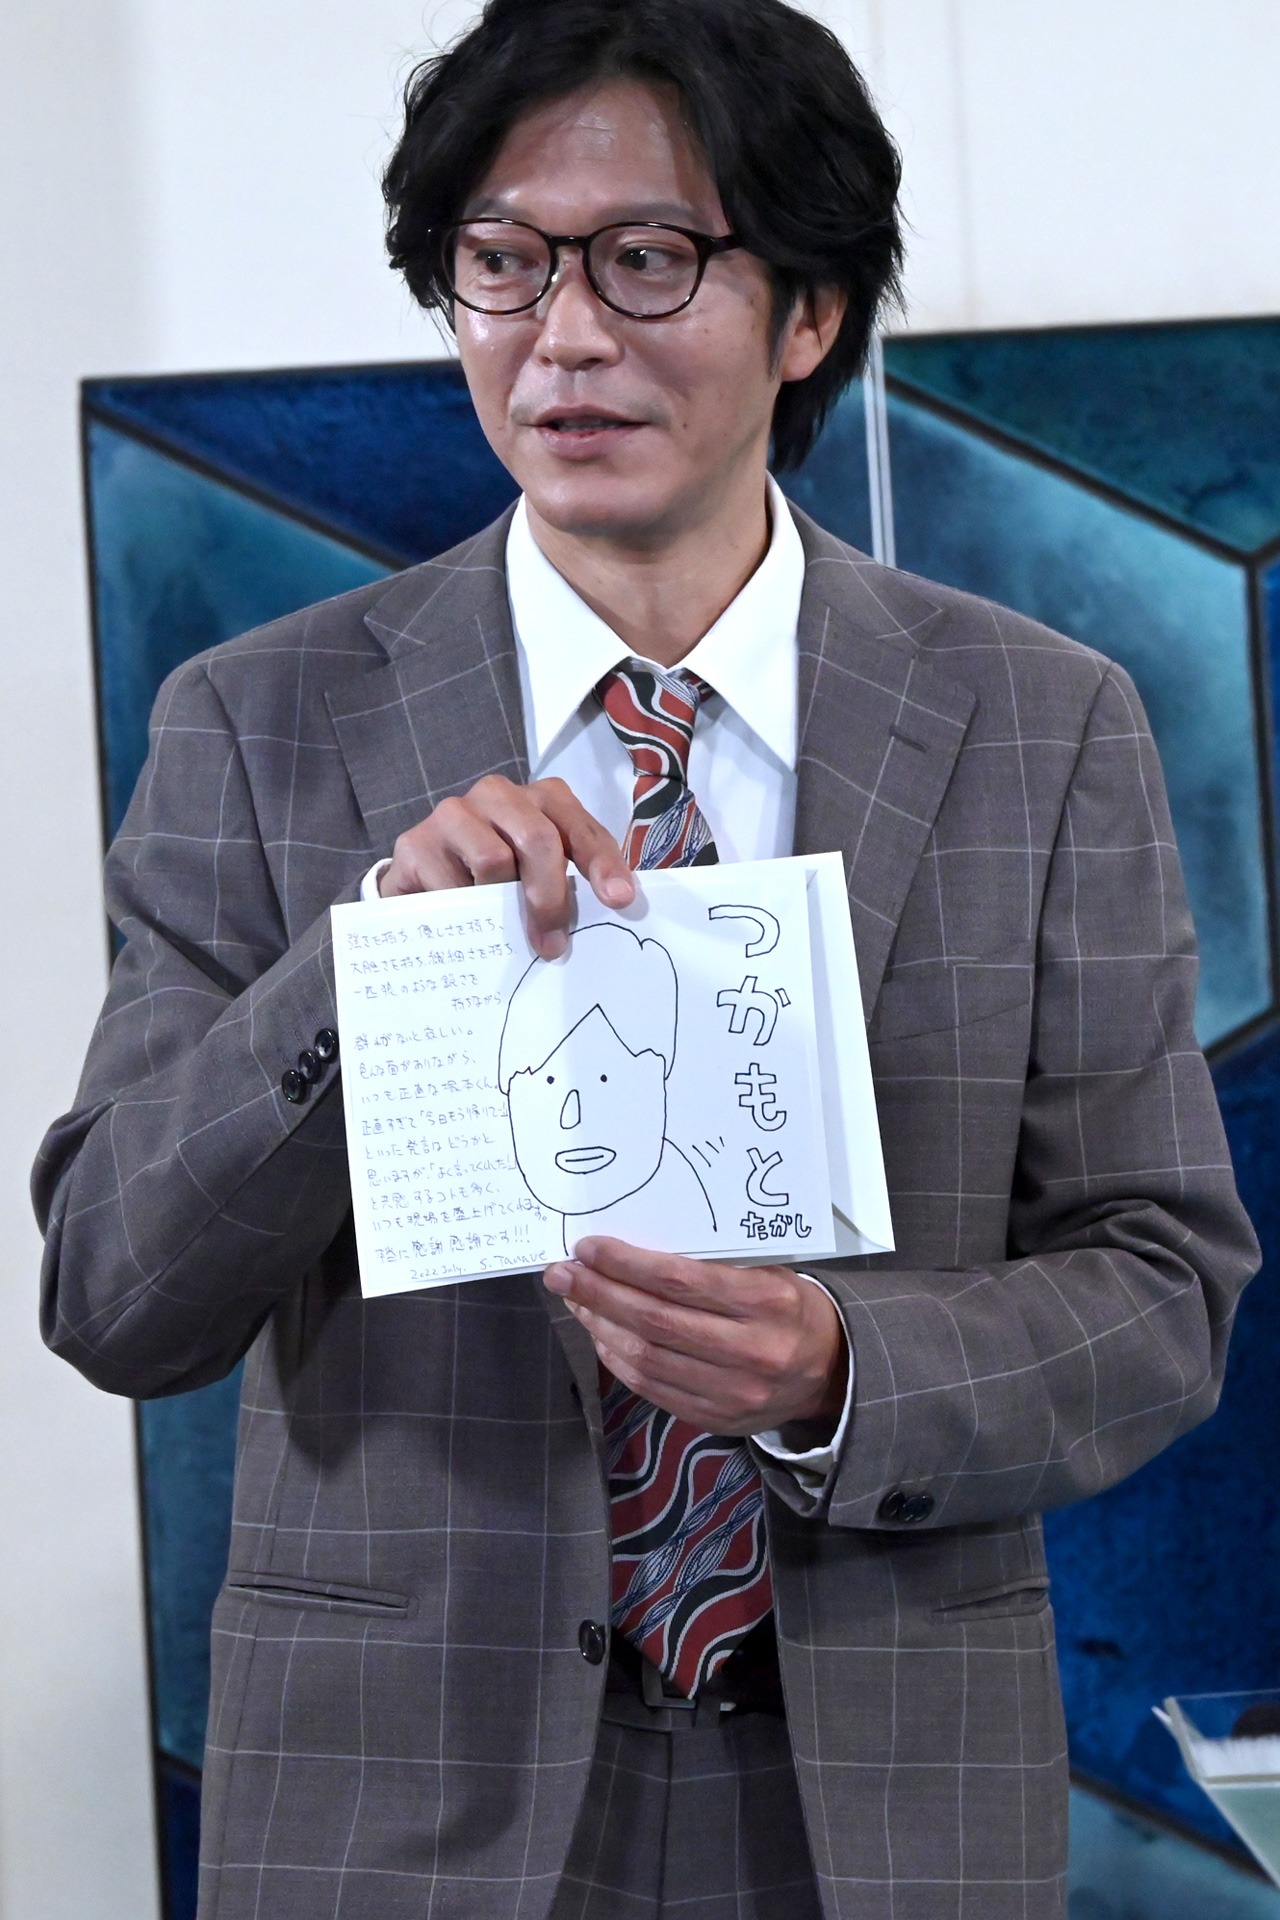 強さを持ち、優しさを持ち、
大胆さを持ち、繊細さを持ち、
一匹狼のような鋭さを
持ちながら
群れがないと寂しい。
色んな面がありながら、
いつも正直な塚本くん。
正直すぎて「今日もう帰りてー」
といった発言はどうかと
思いますが、「よく言ってくれた!」
と共感するコトも多く、
いつも現場を盛上げてくれます。
感謝感謝です!!!
2022.July. S.Tanave
つかもと
たかし